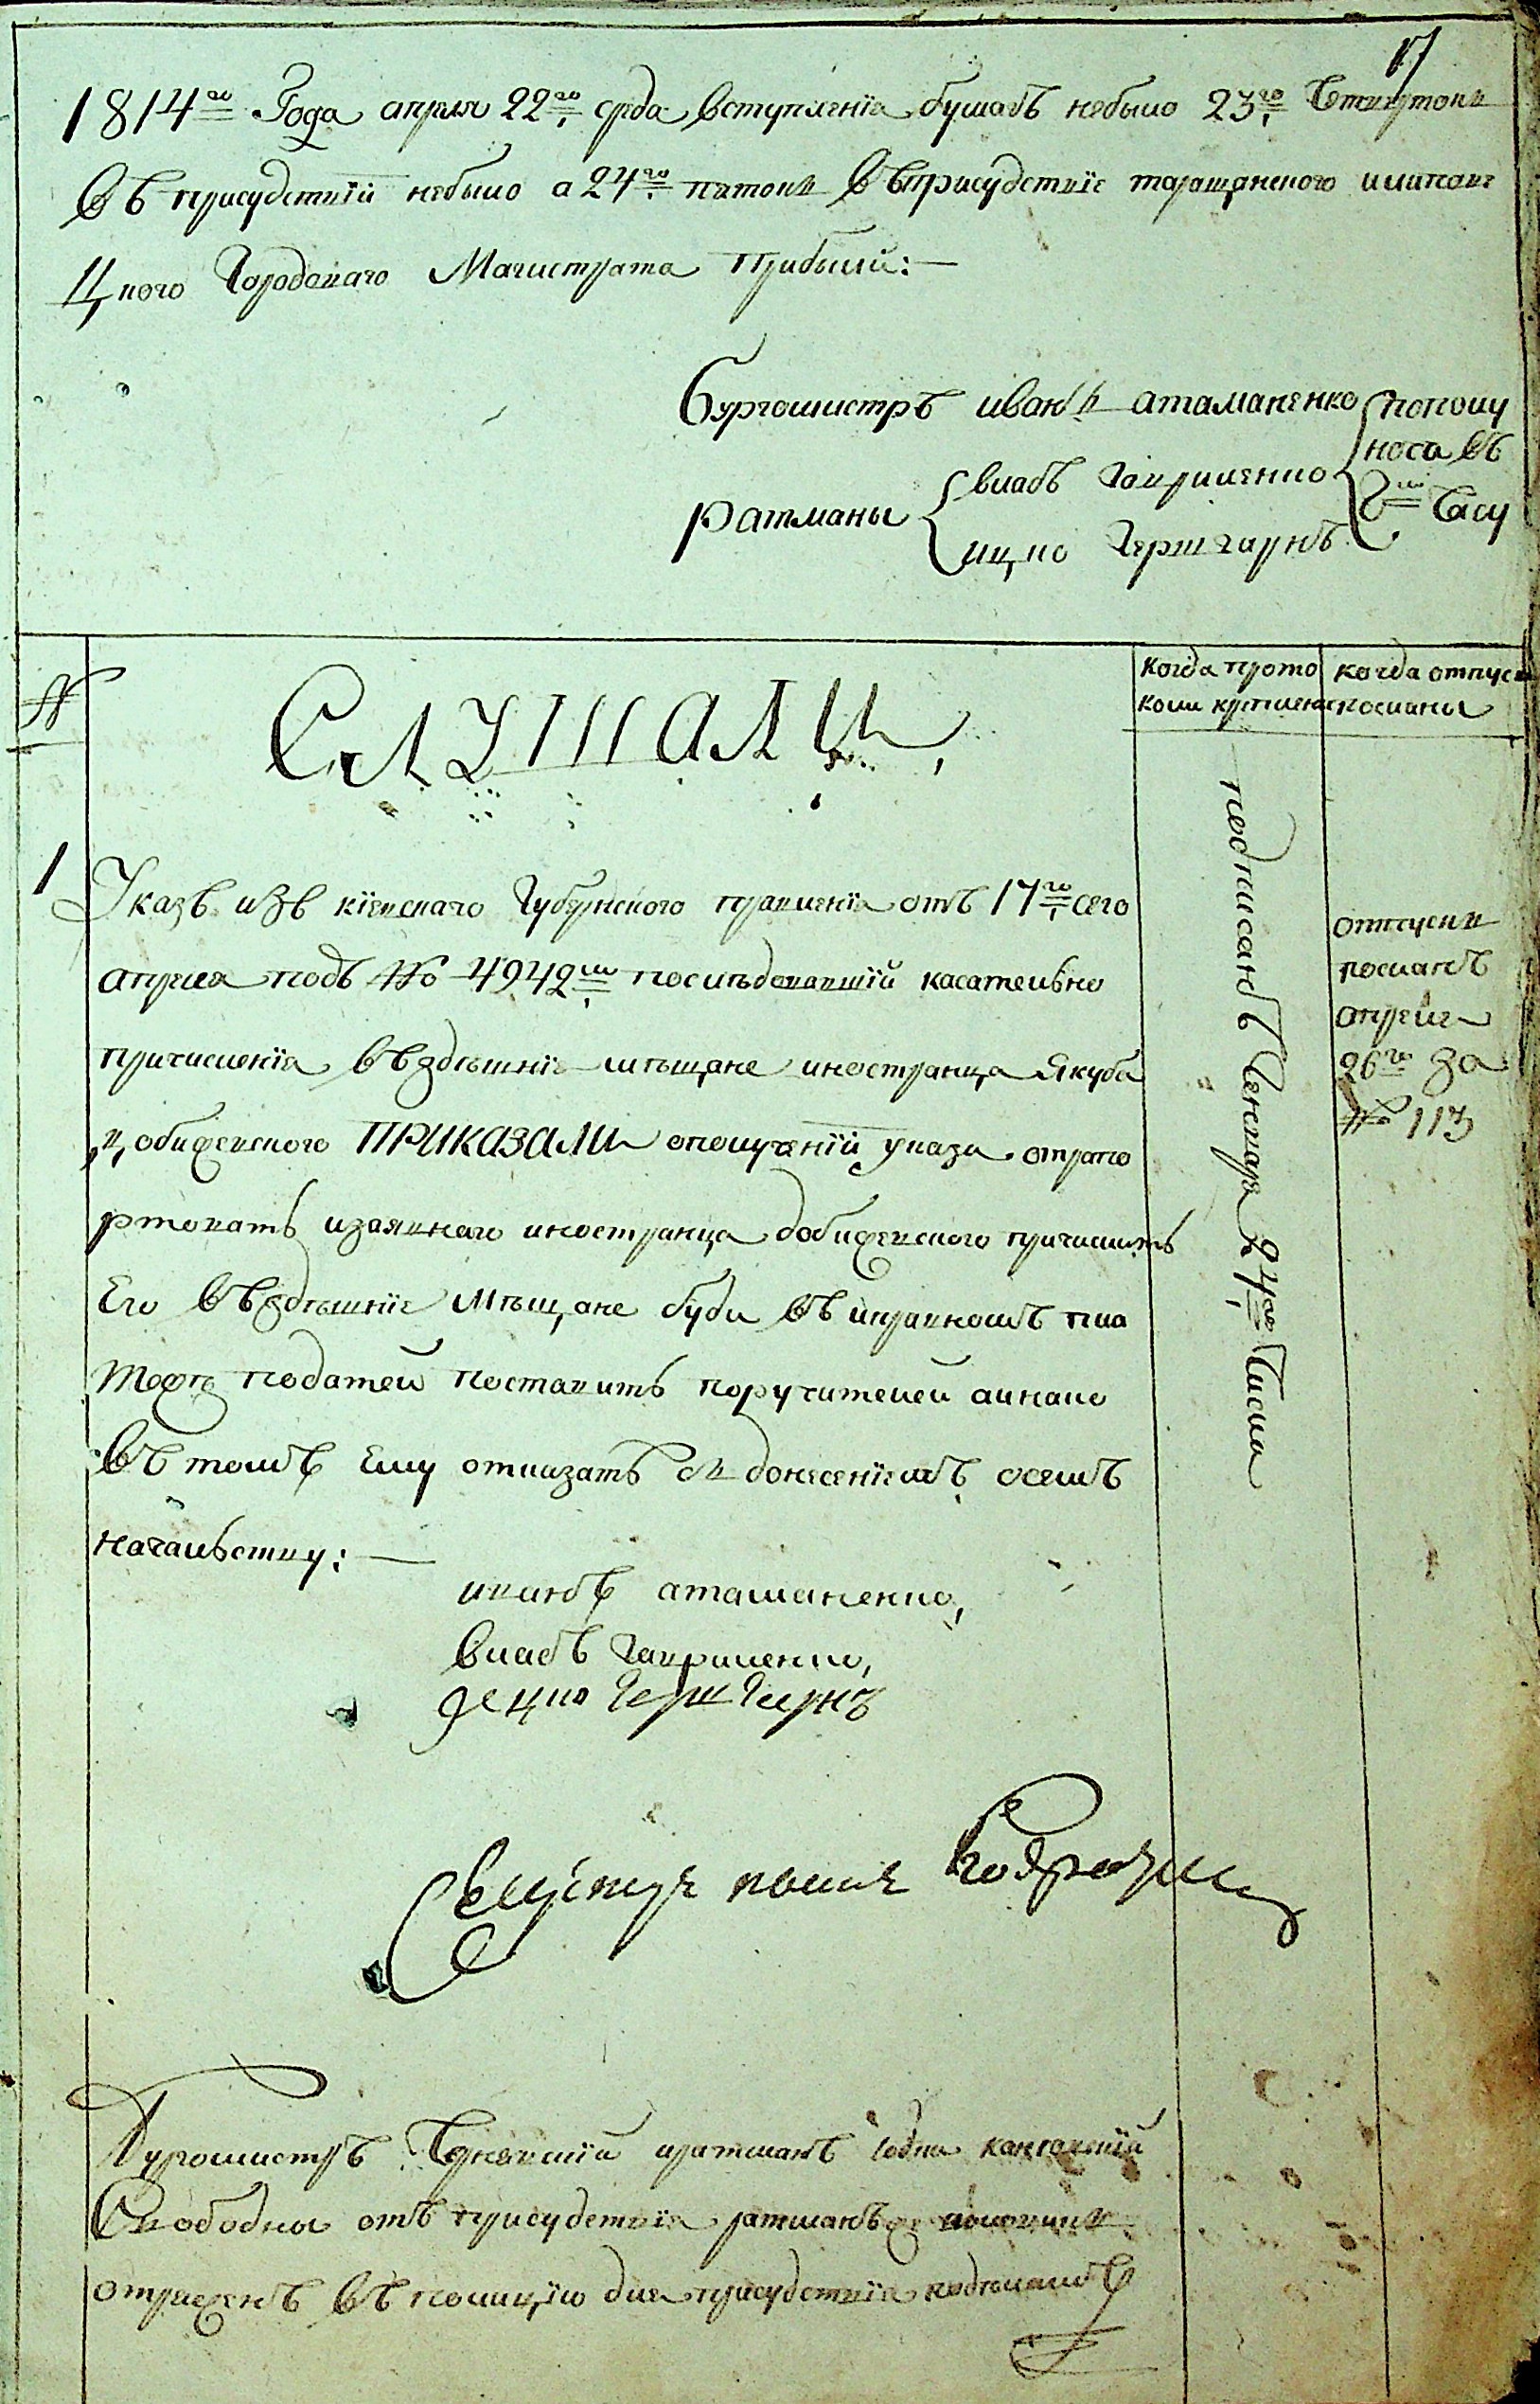 17
1814го Года апреля 22го среда вступленїа бумагъ небыло 23го Четвертокъ
въ присудствїи небыло а 24го пятокъ въ присудствїе таращанского
цкого Городоваго Магистрата прибыли:—
Бургомистръ иванъ атаманенко
ратманы
власъ Гавриленко
ицко Гершгарнъ
пополу
ночи въ
8м Часу
№
СЛУШАЛИ
когда прото
колъ крепленъ
когда отпуск
посланы
1
Указъ изъ кїевскаго Губернского правленїа отъ 17го сего
апреля подъ № 4942м последовавшїй касательно
причисленїа въ здешнїе мещане иностранца Якуба
ПРИКАЗАЛИ ополученїи указа отрапо
ртовать изаявшаго иностранца добиевского причислить
Его въ здешнїе Мещане буди въ исправномъ пла
тежѣ податей поставитъ поручителей аинако
въ томъ Ему отказать съ донесенїемъ осемъ
началъству:—
иванъ атаманенко,
власъ Гавриленко,
ицко Герш Гарнъ
подписанъ Генваря 24го Числа
отпускъ
посланъ
апреля
26го за
№ 113
Бургомистръ иратманъ
Свободны отъ присудствїа ратманъ
въ полицїю для присудствїа